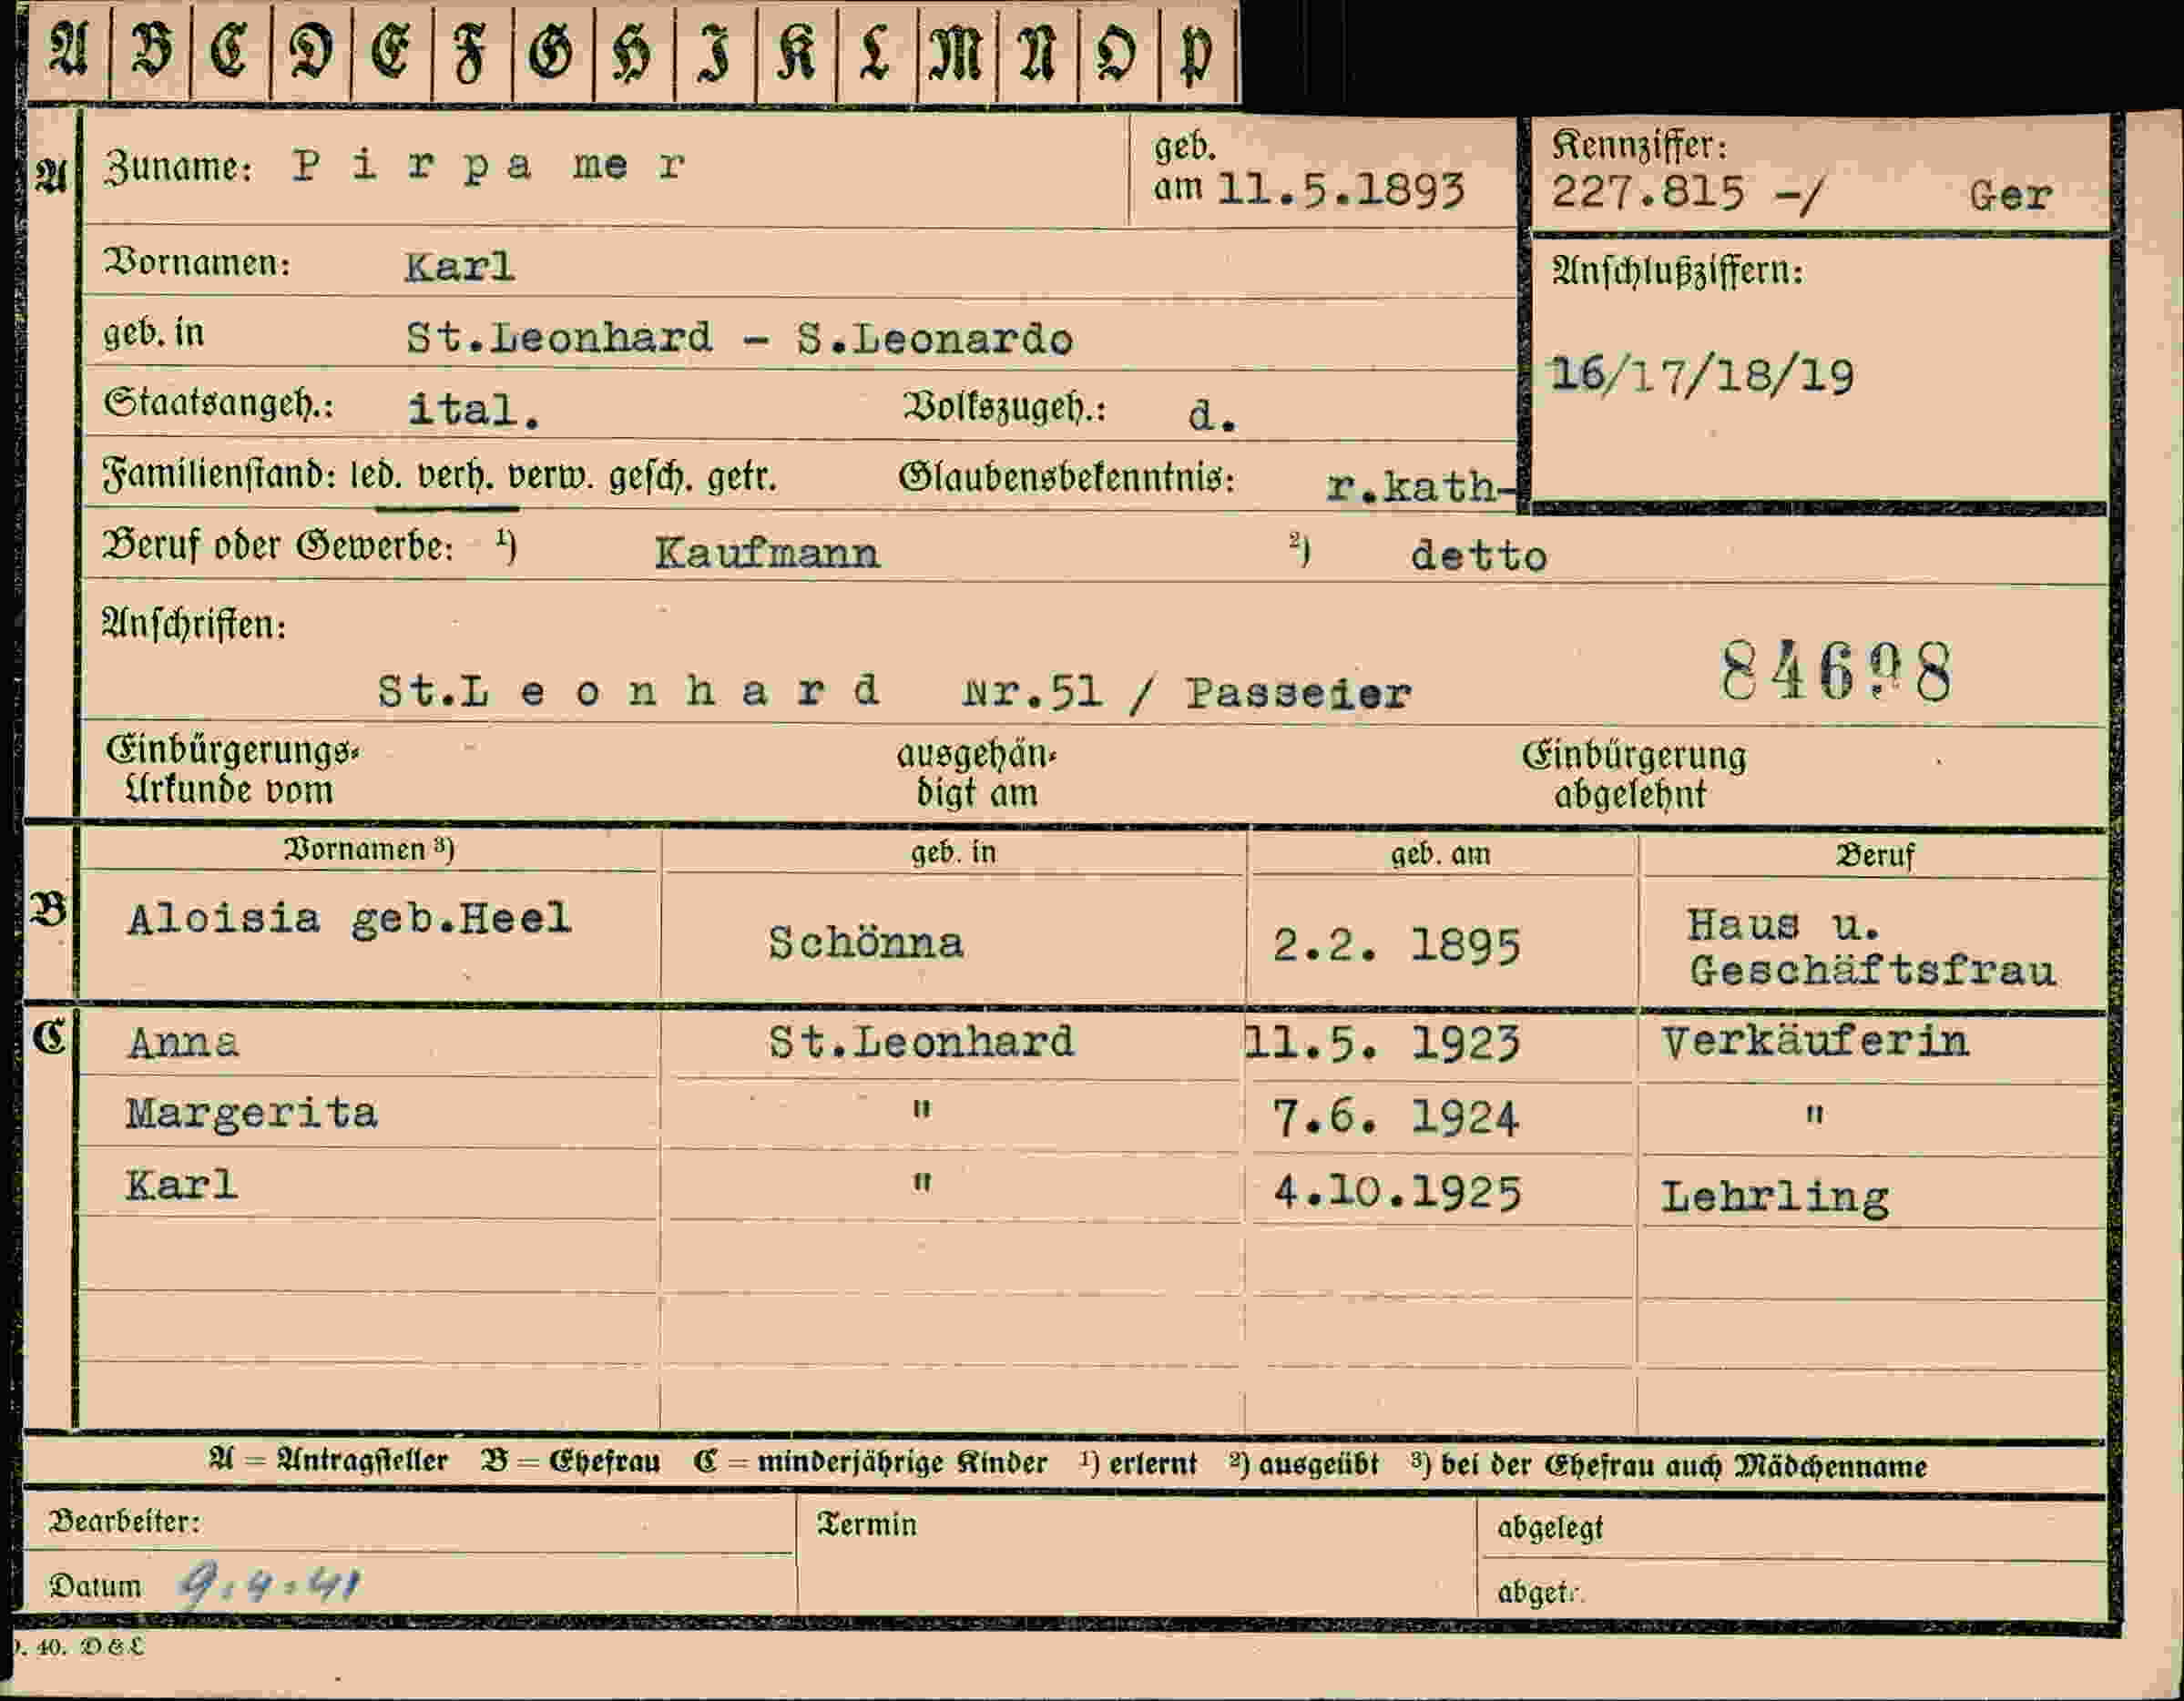 A B C D E F G H I K L M N O P
A Zuname: P i r p a me r geb. am 11.5.1893
Kennziffer: 227.815 -/ Ger
Vornamen: Karl
Anschlußziffern:
geb. in St.Leonhard - S.Leonardo
16/17/18/19
Staatsangeh.: ital. Volkszugeh.: d.
Familienstand: led. verh. verw. gesch. getr. Glaubensbekenntnis: r.kath-
Beruf oder Gewerbe: 1) Kaufmann 2) detto
Anschriften:
St.L e o n h a r d Nr.51 / Passeier 84698
Einbürgerungs-Urkunde vom ausgehän-digt am Einbürgerung abgelehnt
Vornamen 3) geb. in geb. am Beruf
B Aloisia geb.Heel Schönna 2.2. 1895 Haus u. Geschäftsfrau
C Anna St.Leonhard 11.5. 1923 Verkäuferin
Margerita " 7.6. 1924 "
Karl " 4.10.1925 Lehrling
A = Antragsteller B = Ehefrau C = minderjährige Kinder 1) erlernt 2) ausgeübt 3) bei der Ehefrau auch Mädchenname
Bearbeiter: Termin abgelegt
Datum 9.4.41 abgetr.
. 40. D & L